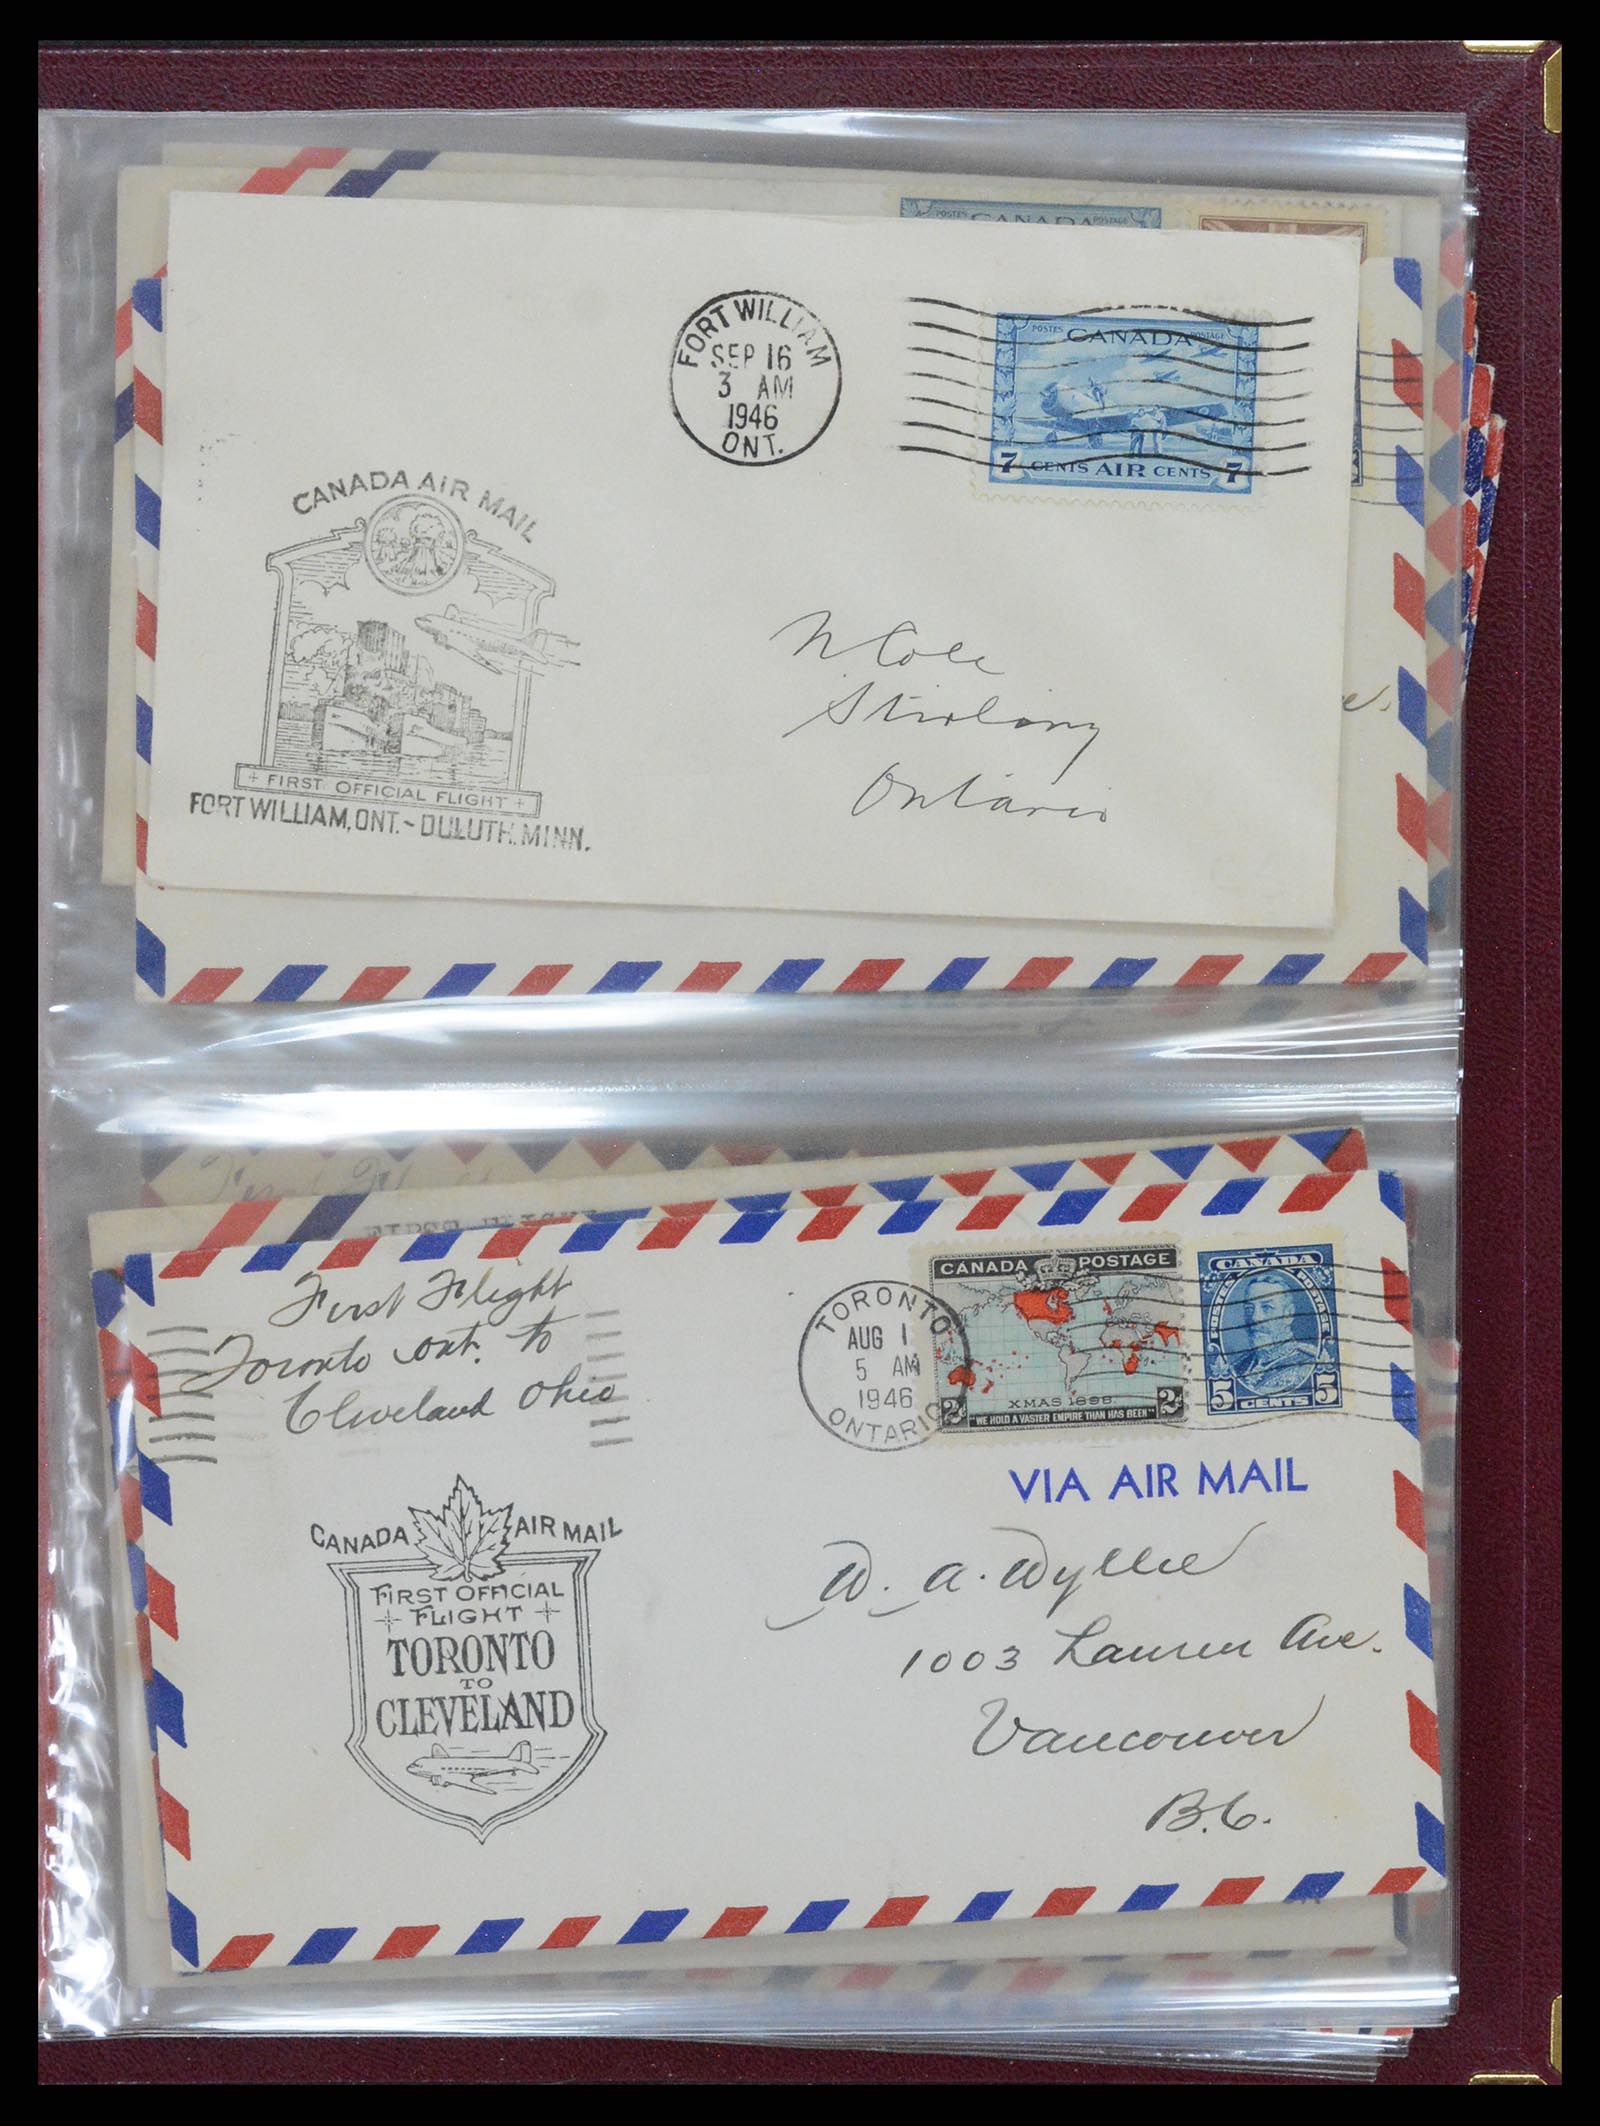 POSTES CANADA POSTAGE
FORT WILLIAM
SEP 16
3 AM
1946
ONT.
POSTES CANADA POSTAGE
7 CENTS AIR CENTS 7
CANADA AIR MAIL
+ FIRST OFFICIAL FLIGHT +
FORT WILLIAM, ONT. ~ DULUTH, MINN.
N Cole
Stirling
Ontario
First Flight
FIRST FLIGHT
First Flight
Toronto ont. to
Cleveland Ohio
TORONTO
AUG 1
5 AM
1946
ONTARIO
CANADA POSTAGE
XMAS 1898
2 2
"WE HOLD A VASTER EMPIRE THAN HAS BEEN"
CANADA
POSTES POSTAGE
5 CENTS 5
VIA AIR MAIL
CANADA AIR MAIL
FIRST OFFICIAL
+ FLIGHT +
TORONTO
TO
CLEVELAND
W. A. Wyllie
1003 Lauren Ave.
Vancouver
B.C.